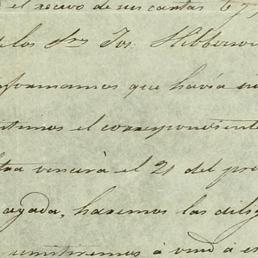 el recivo de sus cartas 6 y
los Srs Jos. Hibberson
formamos que havía si
el correspondiente
vencerá el 21 del pre
agada, haremos las dilig
remitiremos á vmd á es